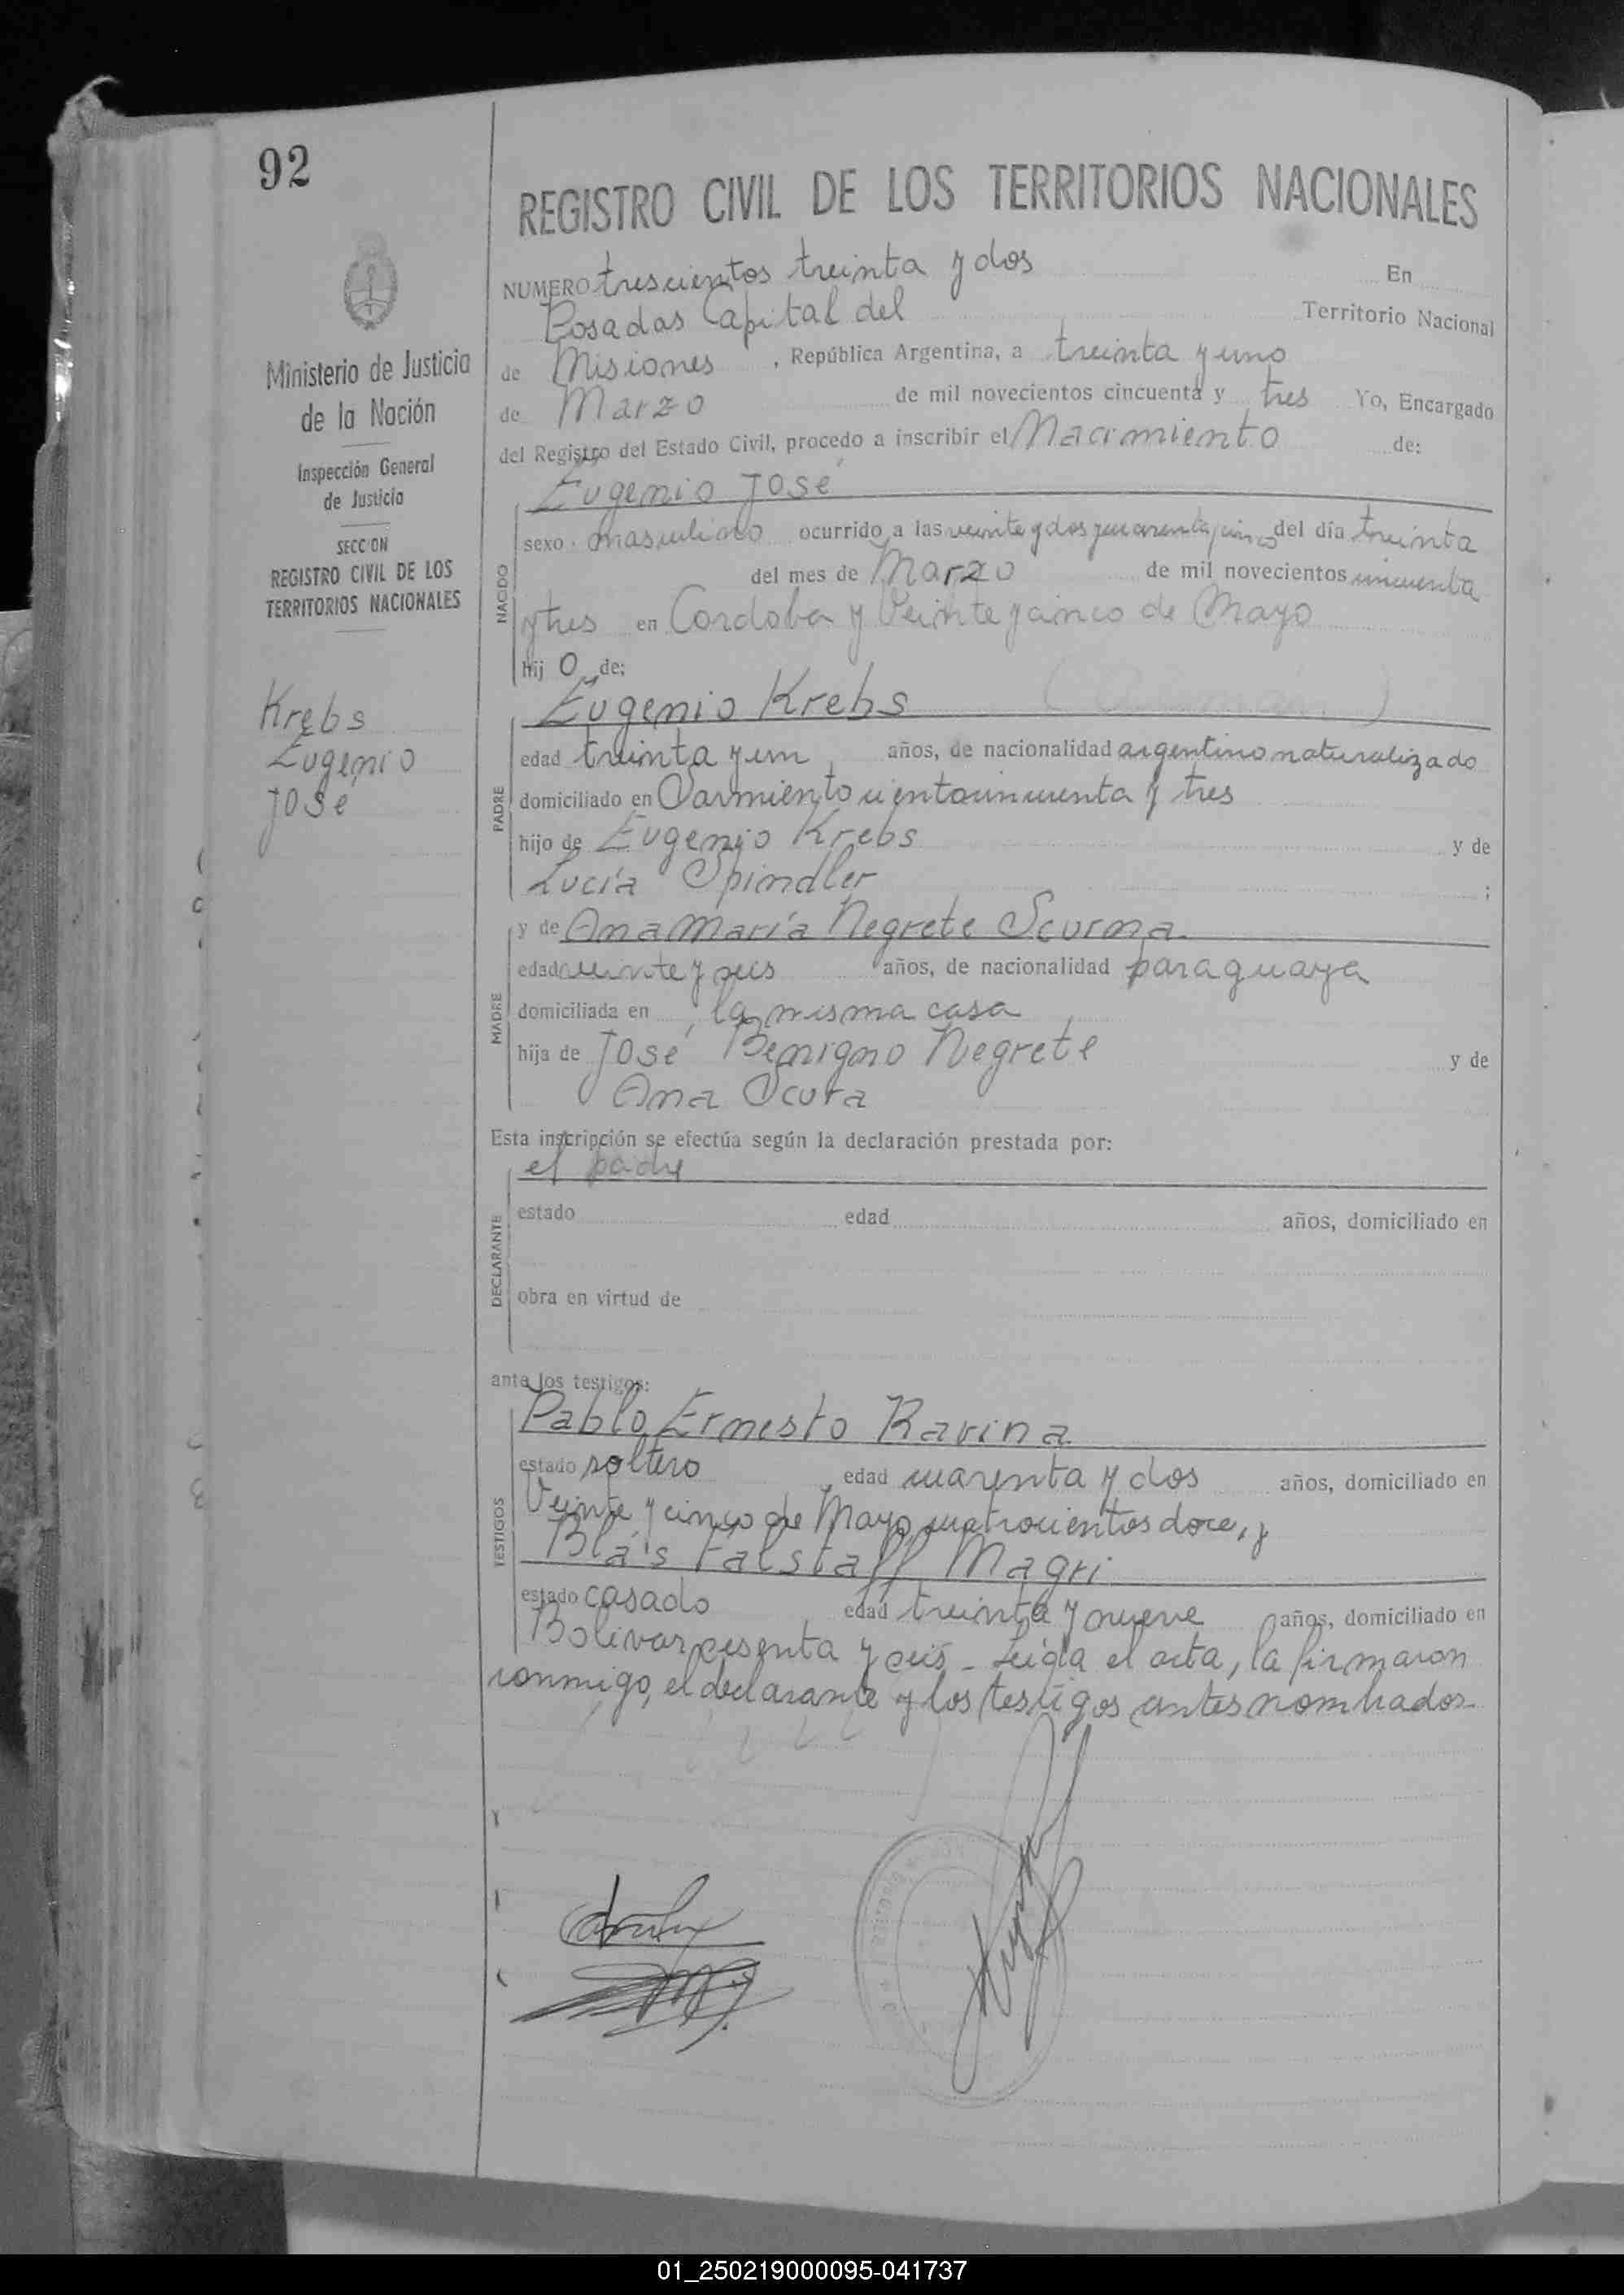 92
REGISTRO CIVIL DE LOS TERRITORIOS NACIONALES
Ministerio de Justicia
de la Nación
Inspección General
de Justicia
SECCION
REGISTRO CIVIL DE LOS
TERRITORIOS NACIONALES
Krebs
Eugenio
José
NUMERO trescientos treinta y dos En
Posadas Capital del Territorio Nacional
de Misiones , República Argentina, a treinta y uno
de Marzo de mil novecientos cincuenta y tres Yo, Encargado
del Registro del Estado Civil, procedo a inscribir el Nacimiento de:
Eugenio José
NACIDO
sexo masculino ocurrido a las veinte y dos y cuarenta y cinco del día treinta
del mes de Marzo de mil novecientos cincuenta
y tres en Cordoba y Veinte y cinco de Mayo
hij o de:
Eugenio Krebs
PADRE
edad treinta y un años, de nacionalidad argentino naturalizado
domiciliado en Sarmiento ciento cincuenta y tres
hijo de Eugenio Krebs y de
Lucía Spindler ;
y de Ana María Negrete Scurna
MADRE
edad veinte y seis años, de nacionalidad paraguaya
domiciliada en la misma casa
hija de José Benigno Negrete y de
Ana Scura
Esta inscripción se efectúa según la declaración prestada por:
el padre
DECLARANTE
estado edad años, domiciliado en
obra en virtud de
ante los testigos:
Pablo Ernesto Ravina
TESTIGOS
estado soltero edad cuarenta y dos años, domiciliado en
Veinte y cinco de Mayo cuatrocientos doce, y
Blás Falstaff Magri
estado casado edad treinta y nueve años, domiciliado en
Bolivar sesenta y seis - Leída el acta, la firmaron
conmigo, el declarante y los testigos antes nombrados-
01_250219000095-041737